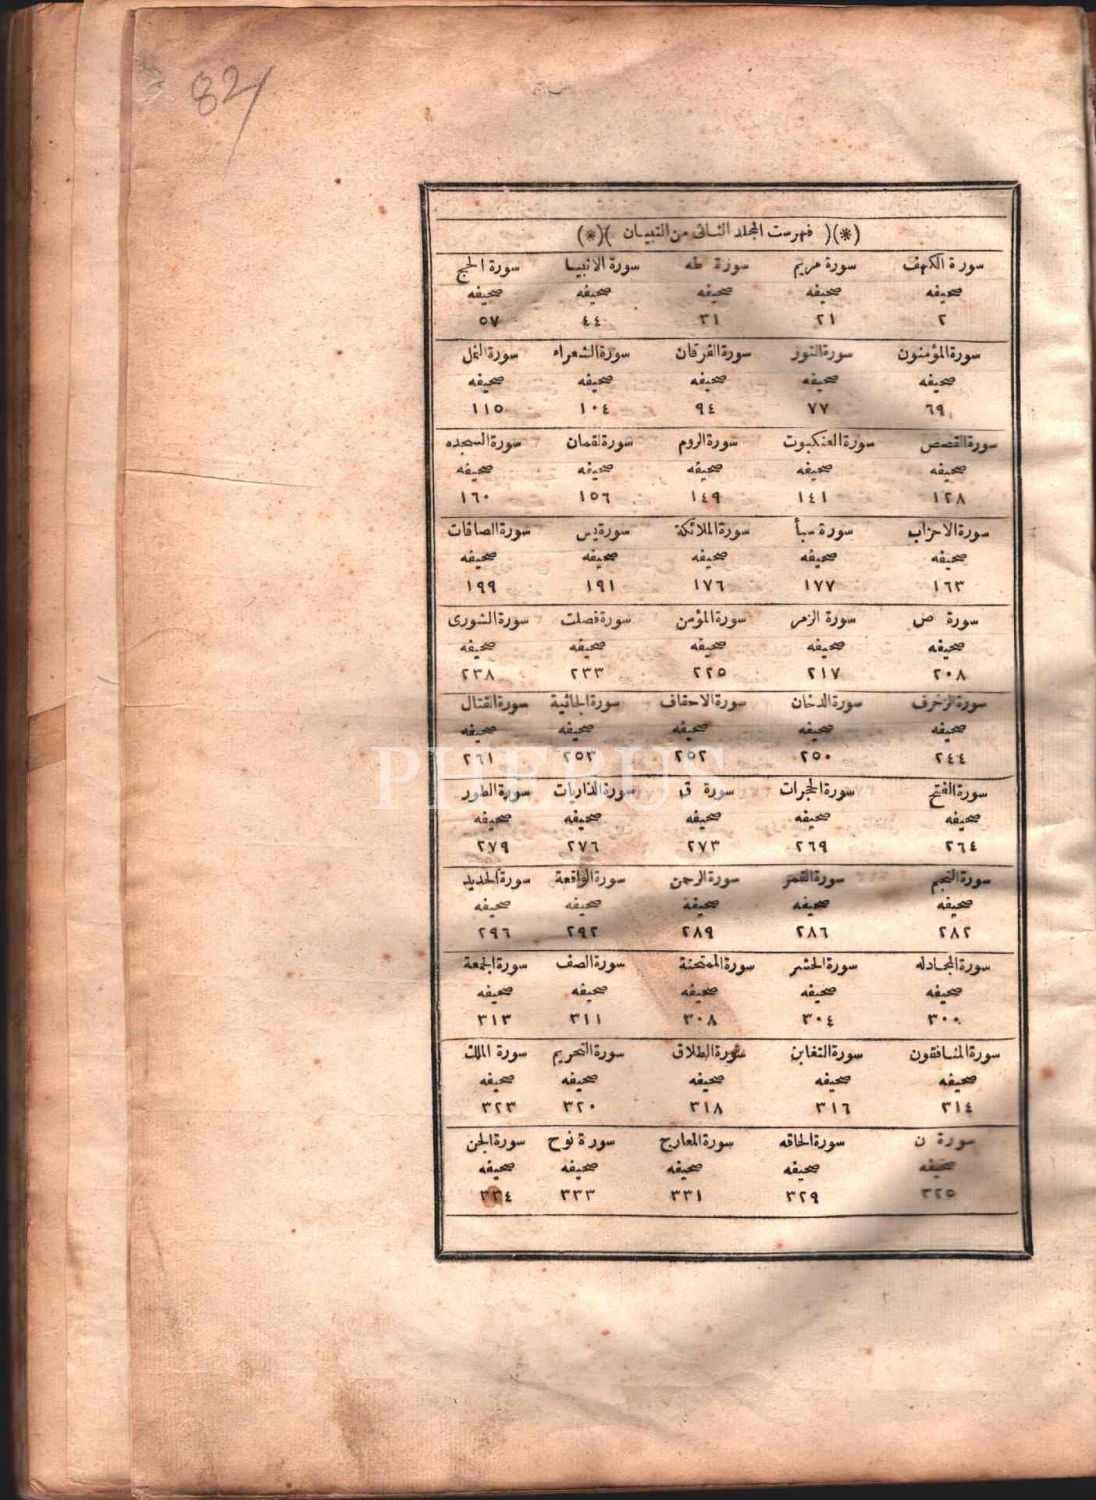 82/
(*)( فهرست المجلد الثانى من التبيان )(*)
سورة الكهف سورة مريم سورة طه سورة الانبيا سورة الحج
صحيفه صحيفه صحيفه صحيفه صحيفه
٢ ٢١ ٣١ ٤٤ ٥٧
سورة المؤمنون سورة النور سورة الفرقان سورة الشعراء سورة النمل
صحيفه صحيفه صحيفه صحيفه صحيفه
٦٩ ٧٧ ٩٤ ١٠٤ ١١٥
سورة القصص سورة العنكبوت سورة الروم سورة لقمان سورة السجده
صحيفه صحيفه صحيفه صحيفه صحيفه
١٢٨ ١٤١ ١٤٩ ١٥٦ ١٦٠
سورة الاحزاب سورة سبأ سورة الملائكة سورة يس سورة الصافات
صحيفه صحيفه صحيفه صحيفه صحيفه
١٦٣ ١٧٧ ١٧٦ ١٩١ ١٩٩
سورة ص سورة الزمر سورة المؤمن سورة فصلت سورة الشورى
صحيفه صحيفه صحيفه صحيفه صحيفه
٢٠٨ ٢١٧ ٢٢٥ ٢٣٣ ٢٣٨
سورة الزخرف سورة الدخان سورة الاحقاف سورة الجاثية سورة القتال
صحيفه صحيفه صحيفه صحيفه صحيفه
٢٤٤ ٢٥٠ ٢٥٢ ٢٥٣ ٢٦١
PHEBUS
سورة الفتح سورة الحجرات سورة ق سورة الذاريات سورة الطور
صحيفه صحيفه صحيفه صحيفه صحيفه
٢٦٤ ٢٦٩ ٢٧٣ ٢٧٦ ٢٧٩
سورة النجم سورة القمر سورة الرحمن سورة الواقعة سورة الحديد
صحيفه صحيفه صحيفه صحيفه صحيفه
٢٨٢ ٢٨٦ ٢٨٩ ٢٩٢ ٢٩٦
سورة المجادله سورة الحشر سورة الممتحنة سورة الصف سورة الجمعة
صحيفه صحيفه صحيفه صحيفه صحيفه
٣٠٠ ٣٠٤ ٣٠٨ ٣١١ ٣١٣
سورة المنافقون سورة التغابن سورة الطلاق سورة التحريم سورة الملك
صحيفه صحيفه صحيفه صحيفه صحيفه
٣١٤ ٣١٦ ٣١٨ ٣٢٠ ٣٢٣
سورة ن سورة الحاقه سورة المعارج سورة نوح سورة الجن
صحيفه صحيفه صحيفه صحيفه صحيفه
٣٢٥ ٣٢٩ ٣٣١ ٣٣٣ ٣٣٤